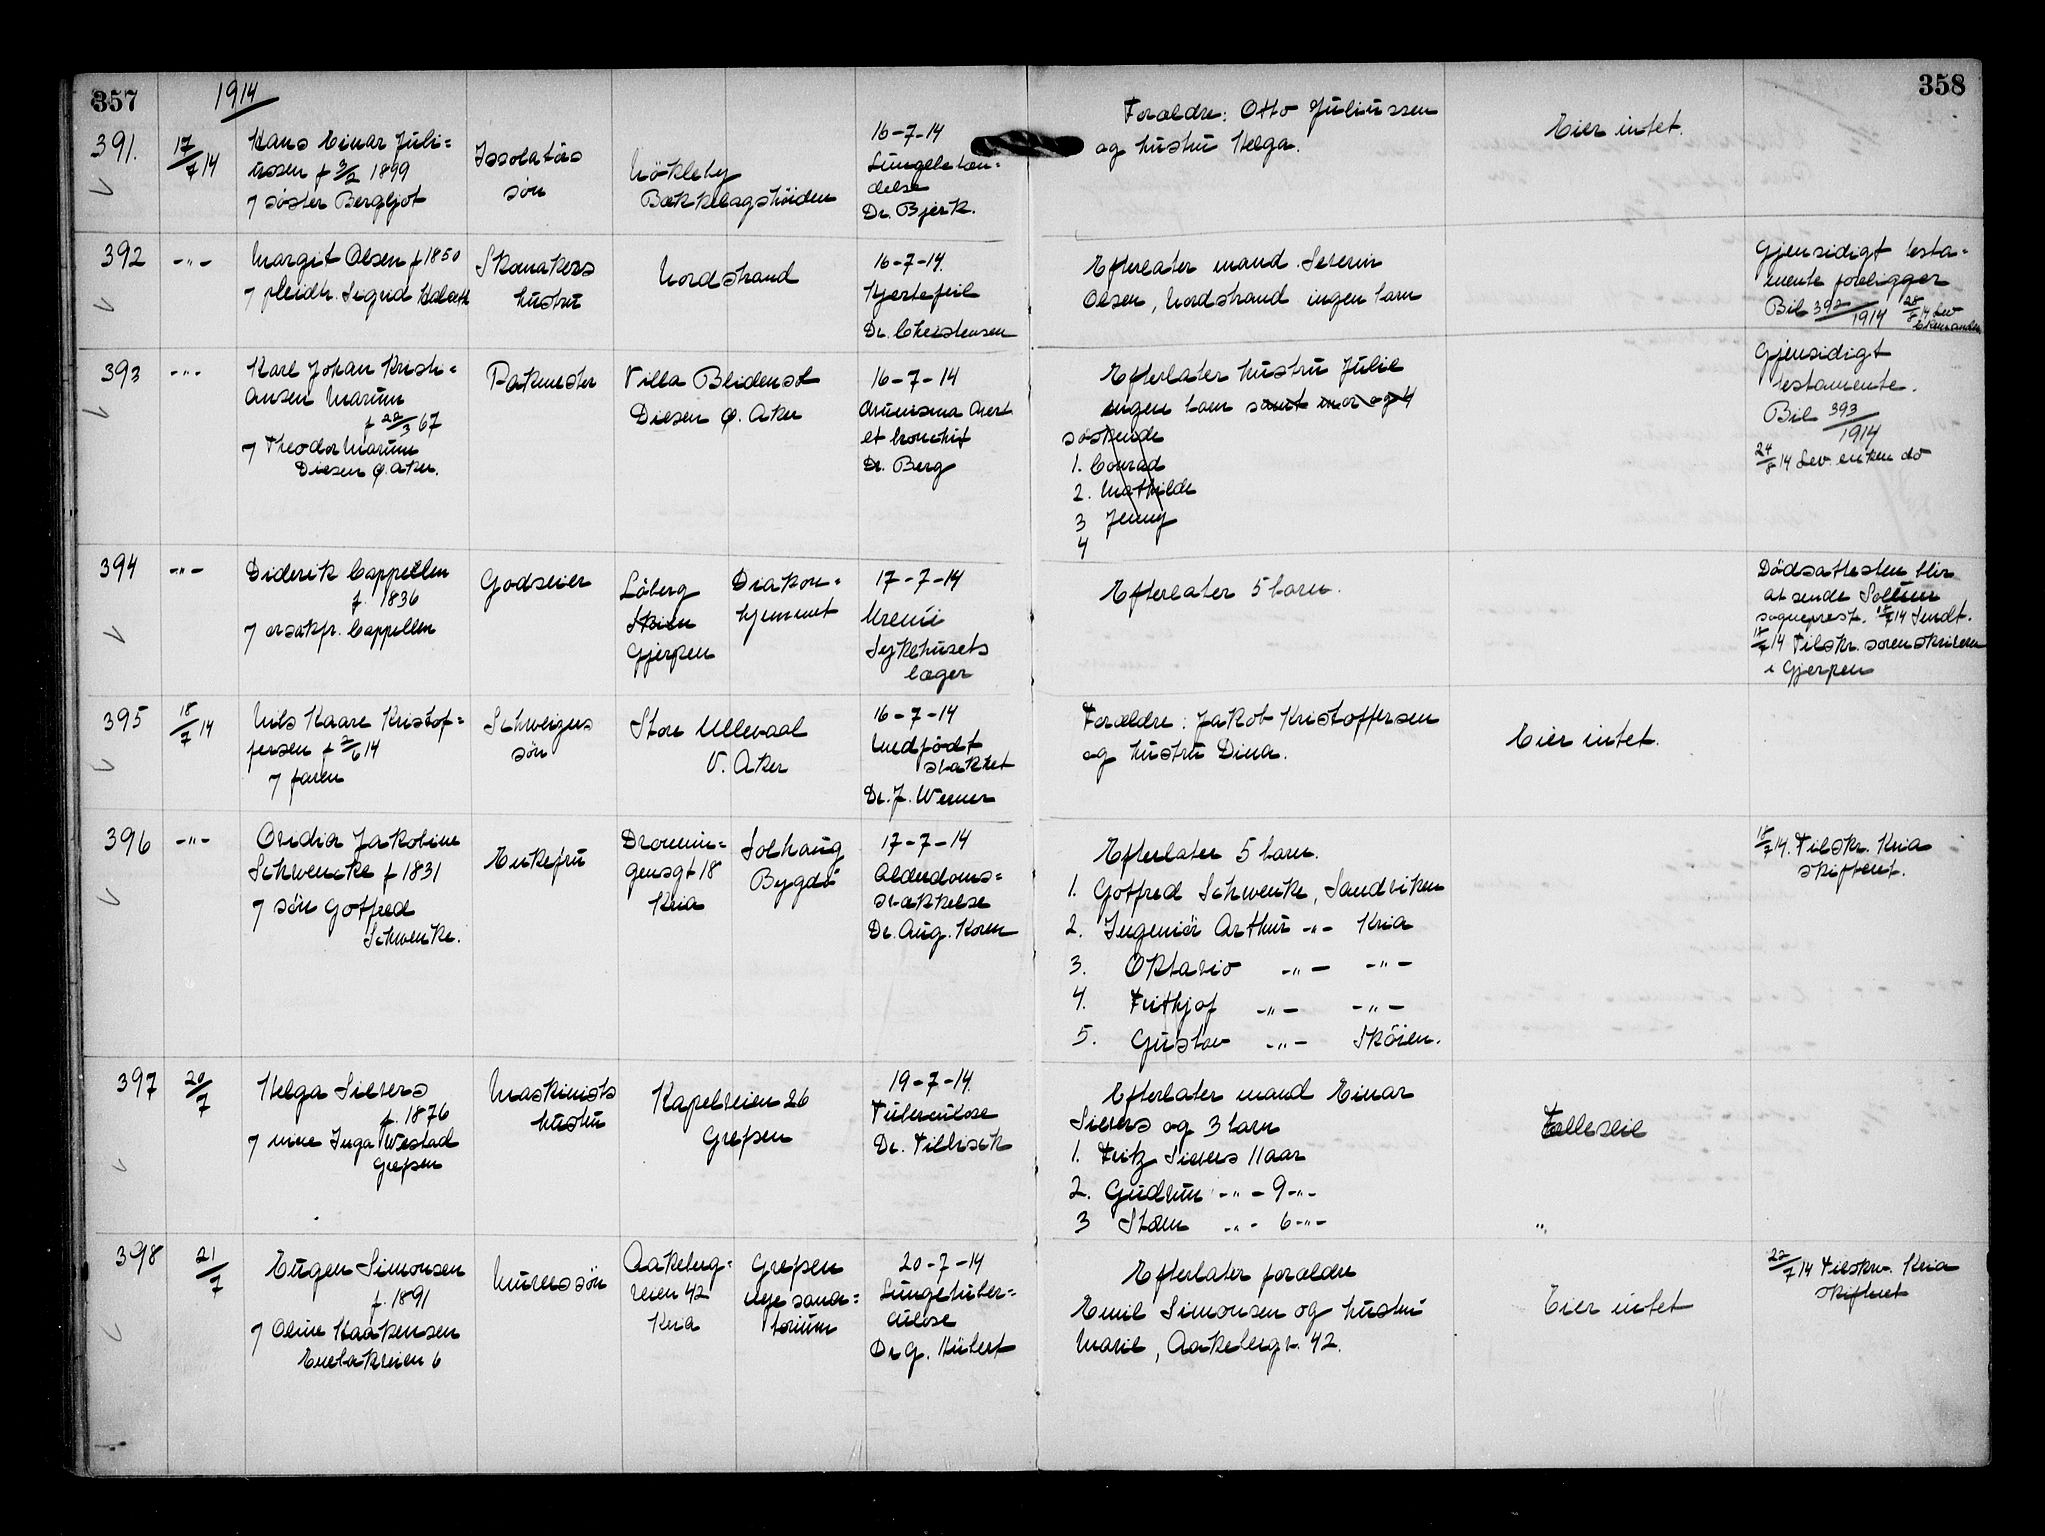 357
1914
358
391.
17/7 14
Hans Einar Juli=
ussen f 3/2 1899
7 søster Bergljot
Issolatørs
søn
Nökleby
Bækkelagshöiden
16-7-14
Lungebetæn=
delse
Dr. Bjerk.
Forældre: Otto Juliussen
og hustru Helga.
Eier intet.
392
-"-
Margit Olsen f 1850
7 pleidtr. Sigrid
Skomakers
hustru
Nordstrand
16-7-14.
Hjertefeil
Dr. Christensen
Efterlater mand Severin
Olsen, Nordstrand ingen barn
Gjensidigt testa=
mente foreligger
Bil 392/1914 28/8 14 Lev
393
-"-
Karl Johan Kristi=
ansen Marum
f 22/3 67
7 Theodor Marum
Diesen Ø. Aker.
Pakmester
Villa Blidensol
Diesen Ø. Aker
16-7-14
et bronchit
Dr. Berg
Efterlater hustru Julie
ingen barn samt mor og 4
søskende
1. Conrad
2. Mathilde
3 Jenny
4
Gjensidigt
testamente.
Bil 393/1914
24/8 14 Lev. enken do
394
-"-
Diderik Cappelen
f. 1836
7 orsakfr. Cappelen
Godseier
Løberg
Skien
Gjerpen
Diakon=
hjemmet
17-7-14
Uremi
Sykehusets
læger
Efterlater 5 barn.
Dødsattesten blir
at sende Sollum
sogneprest. 18/7 14 Sendt.
18/7 14 Tilskr. sorenskriveren
i Gjerpen
395
18/7 14
Nils Kaare Kristof=
fersen f 2/6 14
7 faren
Schweizers
søn
Store Ullevaal
V. Aker
16-7-14
Medfødt
svakhet
Dr. J. Werner
Forældre: Jakob Kristoffersen
og hustru Dina.
Eier intet.
396
-"-
Ovidia Jakobine
Schwencke f 1831
7 søn Gotfred
Schwenke.
Enkefru
Dronnin=
gensgt 18
Kria
Solhaug
Bygdö
17-7-14
Alderdoms=
svækkelse
Dr. Aug. Koren
Efterlater 5 barn.
1. Gotfred Schwenke, Sandviken
2. Ingeniör Arthur -"- Kria
3. Oktavio -"- -"-
4. Frithjof -"- -"-
5. Gustav -"- Skøien.
18/7 14. Tilskr. Kria
skifteret.
397
20/7
Helga Sievers
f. 1876
7 niese Inga Westad
Grefsen
Maskinists
hustru
Kapelveien 26
Grefsen
19-7-14.
Tuberkulose
Dr. Tillisch
Efterlater mand Einar
Sievers og 3 barn
1. Fritz Sievers 11 aar
2. Gudrun -"- 9 -"-
3 Steen -"- 6 -"-
Fælleseie
"
398
21/7
Eugen Simonsen
f. 1891
7 Oline Haakensen
Enebakveien 6
Murers søn
Aakeberg=
veien 42
Kria
Grefsen
nye sana=
torium
20-7-14
Lungetuber=
culose
Dr G. Hübert
Efterlater forældre
Emil Simonsen og hustru
Marie, Aakebergv. 42.
Eier intet
22/7 14 Tilskr. Kria
skifteret